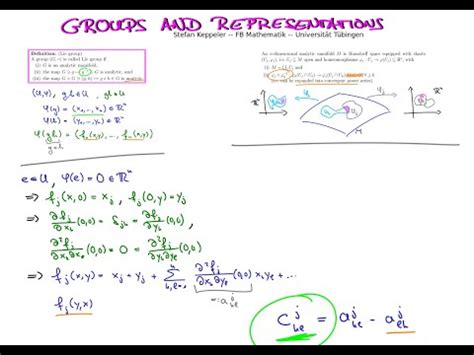 GROUPS AND REPRESENTATIONS
Stefan Keppeler -- FB Mathematik -- Universität Tübingen
Definition: (Lie group)
A group (G, ∘) is called Lie group if
(i) G is an analytic manifold,
(ii) the map is analytic, and
(iii) the map is analytic.
An n-dimensional analytic manifold M is Hausdorff space equipped with charts
(U,φ), g,h∈U, gh∈U
φ(g) = (x₁,…,xₙ) ∈ ℝⁿ
φ(h) = (y₁,…,yₙ) ∈ ℝⁿ
φ(gh) = (f₁(x,y),…,fₙ(x,y))
ℝⁿ
M
ℝⁿ
e∈U, φ(e) = 0 ∈ ℝⁿ
⇒ f_j(x,0) = x_j, f_j(0,y) = y_j
⇒ ∂f_j/∂x_k (0,0) = δ_jk = ∂f_j/∂y_k (0,0)
∂²f_j/∂x_k∂x_l (0,0) = 0 = ∂²f_j/∂y_k∂y_l (0,0)
⇒ f_j(x,y) = x_j + y_j + Σ_{k,l=1}^n ∂²f_j/∂x_k∂y_l (0,0) x_k y_l + …
=: a^j_kl
f_j(y,x)
C^j_kl = a^j_kl - a^j_lk